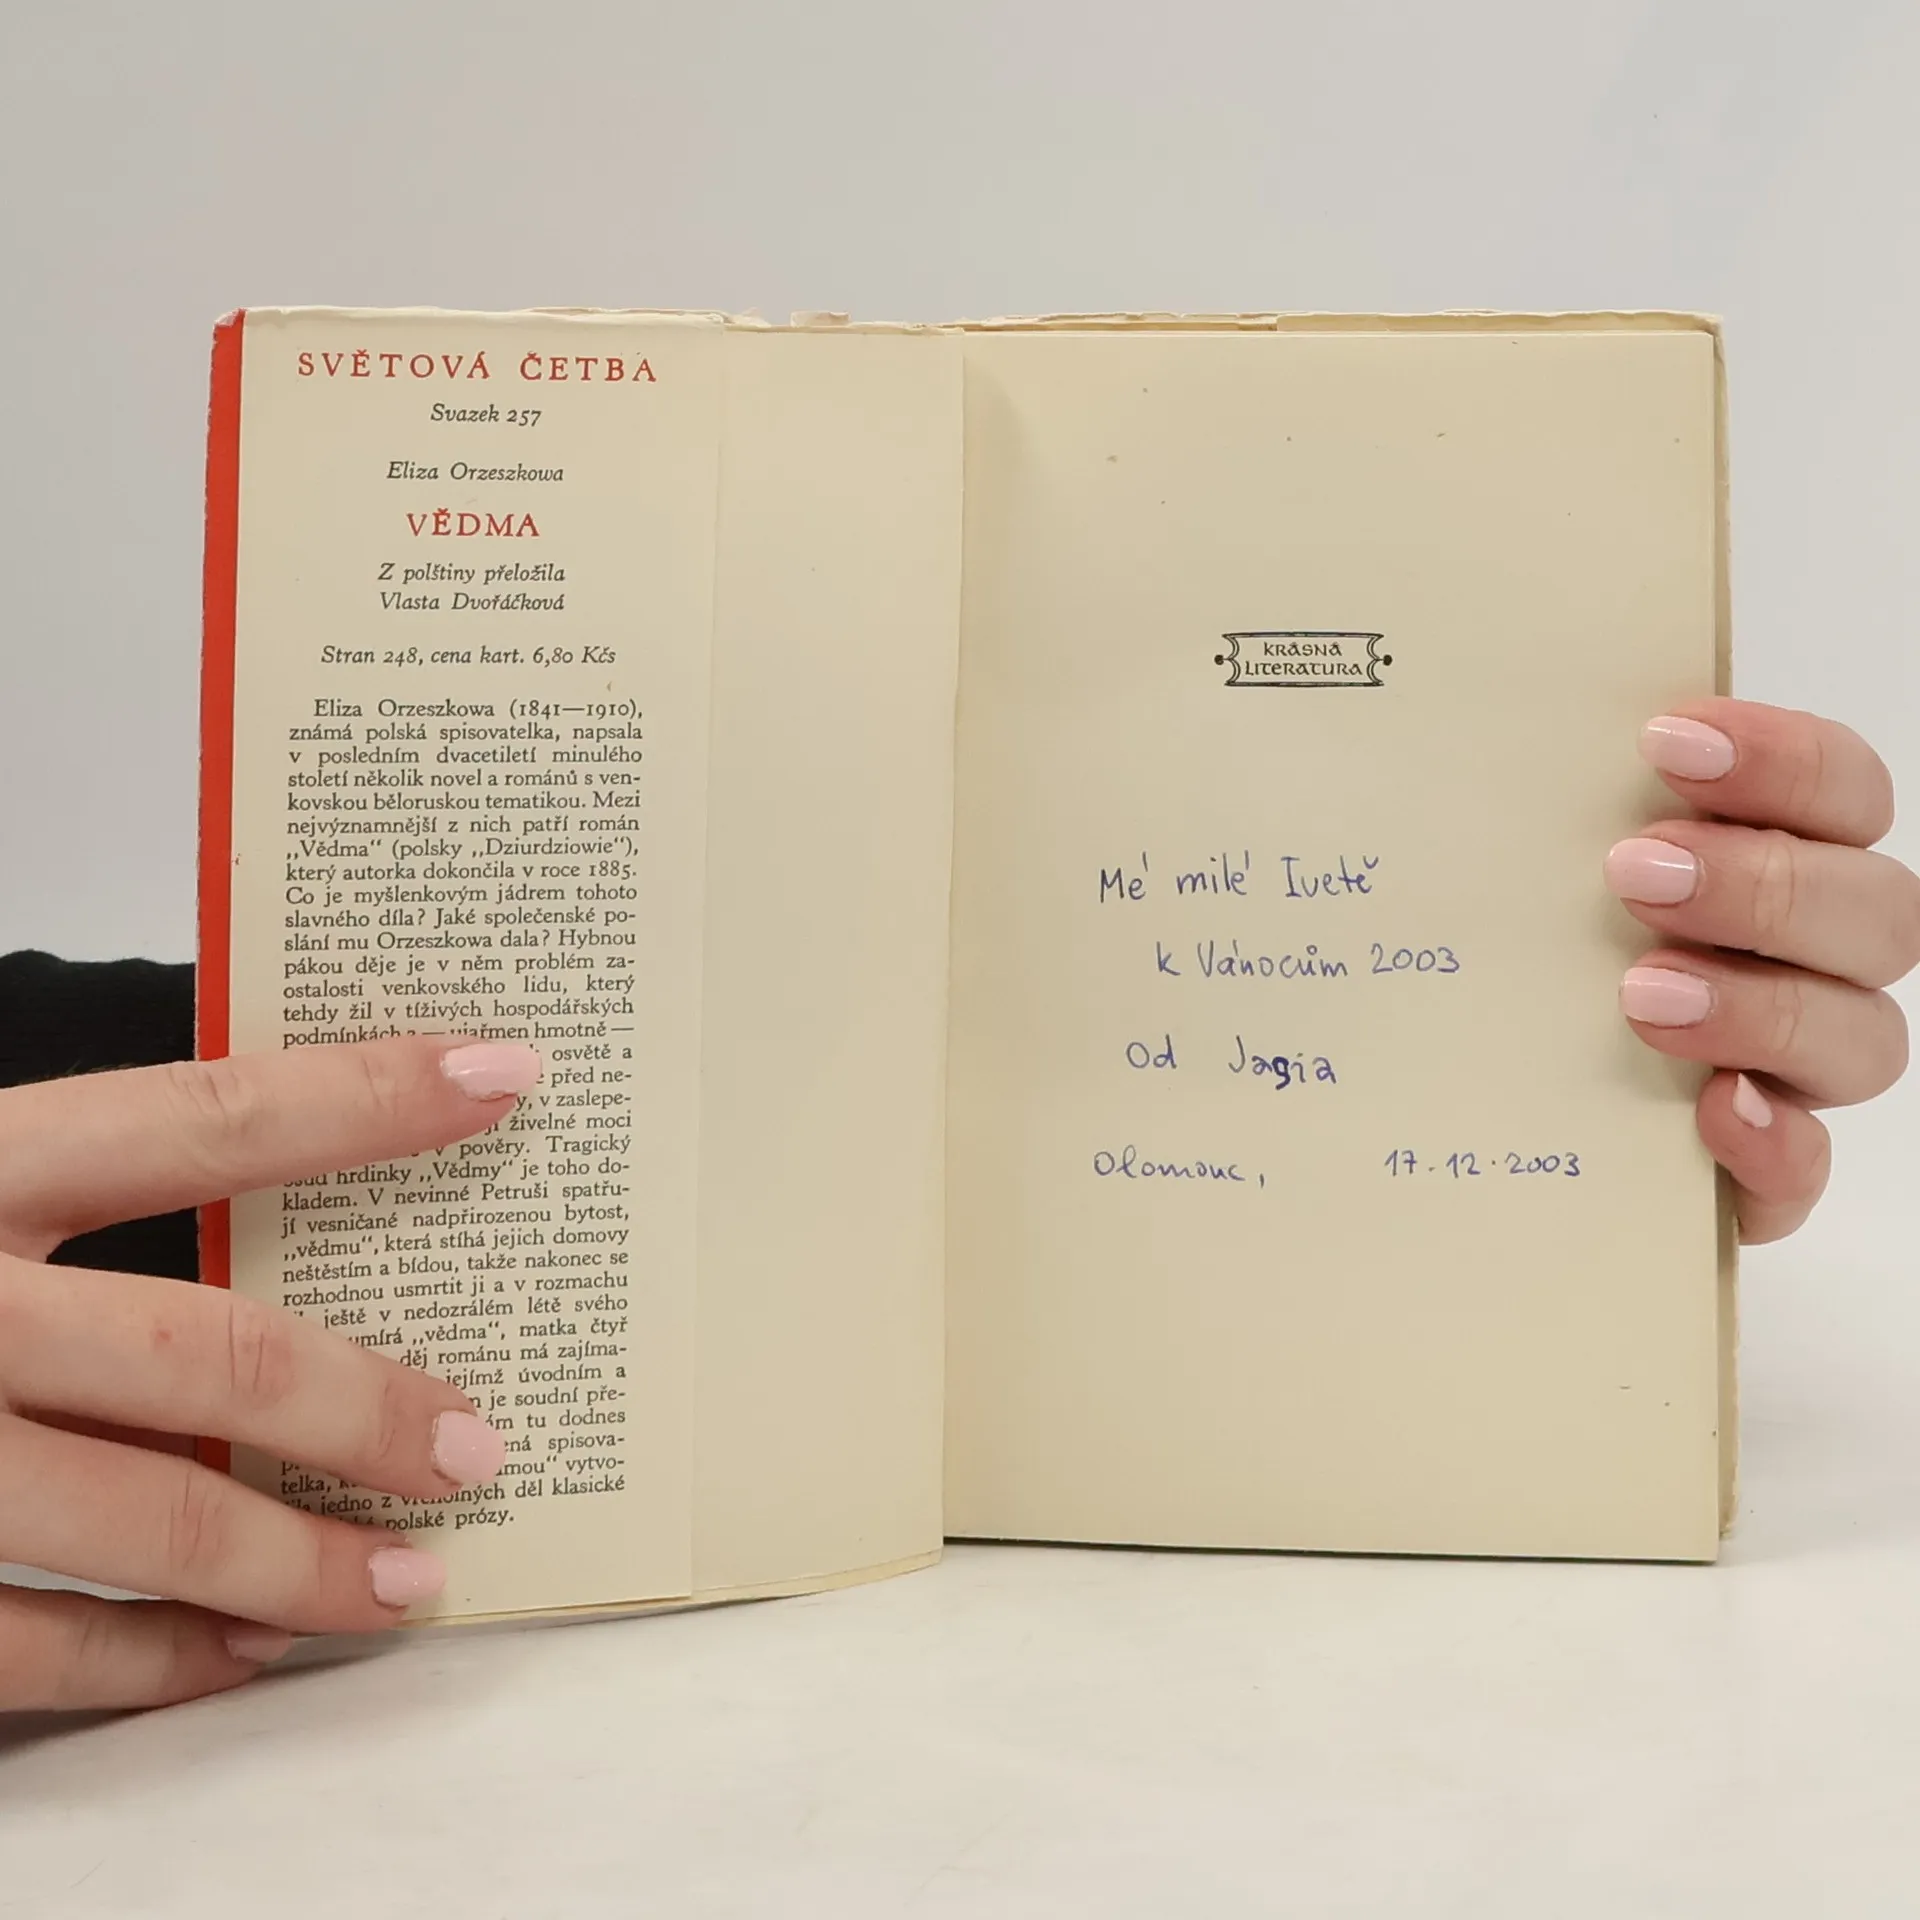 SVĚTOVÁ ČETBA
Svazek 257
Eliza Orzeszkowa
VĚDMA
Z polštiny přeložila
Vlasta Dvořáčková
Stran 248, cena kart. 6,80 Kčs
Eliza Orzeszkowa (1841—1910),
známá polská spisovatelka, napsala
v posledním dvacetiletí minulého
století několik novel a románů s ven-
kovskou běloruskou tematikou. Mezi
nejvýznamnější z nich patří román
„Vědma“ (polsky „Dziurdziowie“),
který autorka dokončila v roce 1885.
Co je myšlenkovým jádrem tohoto
slavného díla? Jaké společenské po-
slání mu Orzeszkowa dala? Hybnou
pákou děje je v něm problém za-
ostalosti venkovského lidu, který
tehdy žil v tíživých hospodářských
podmínkách a — ujařmen hmotně —
osvětě a
před ne-
v zaslepe-
živelné moci
v pověry. Tragický
osud hrdinky „Vědmy“ je toho do-
kladem. V nevinné Petruši spatřu-
jí vesničané nadpřirozenou bytost,
„vědmu“, která stíhá jejich domovy
neštěstím a bídou, takže nakonec se
rozhodnou usmrtit ji a v rozmachu
ještě v nedozrálém létě svého
umírá „vědma“, matka čtyř
děj románu má zajíma-
jejímž úvodním a
je soudní pře-
tu dodnes
spisova-
vytvo-
telka,
jedno z vrcholných děl klasické
polské prózy.
KRÁSNÁ
LITERATURA
Mé milé Ivetě
k Vánocům 2003
Od Jagia
Olomouc, 17.12.2003